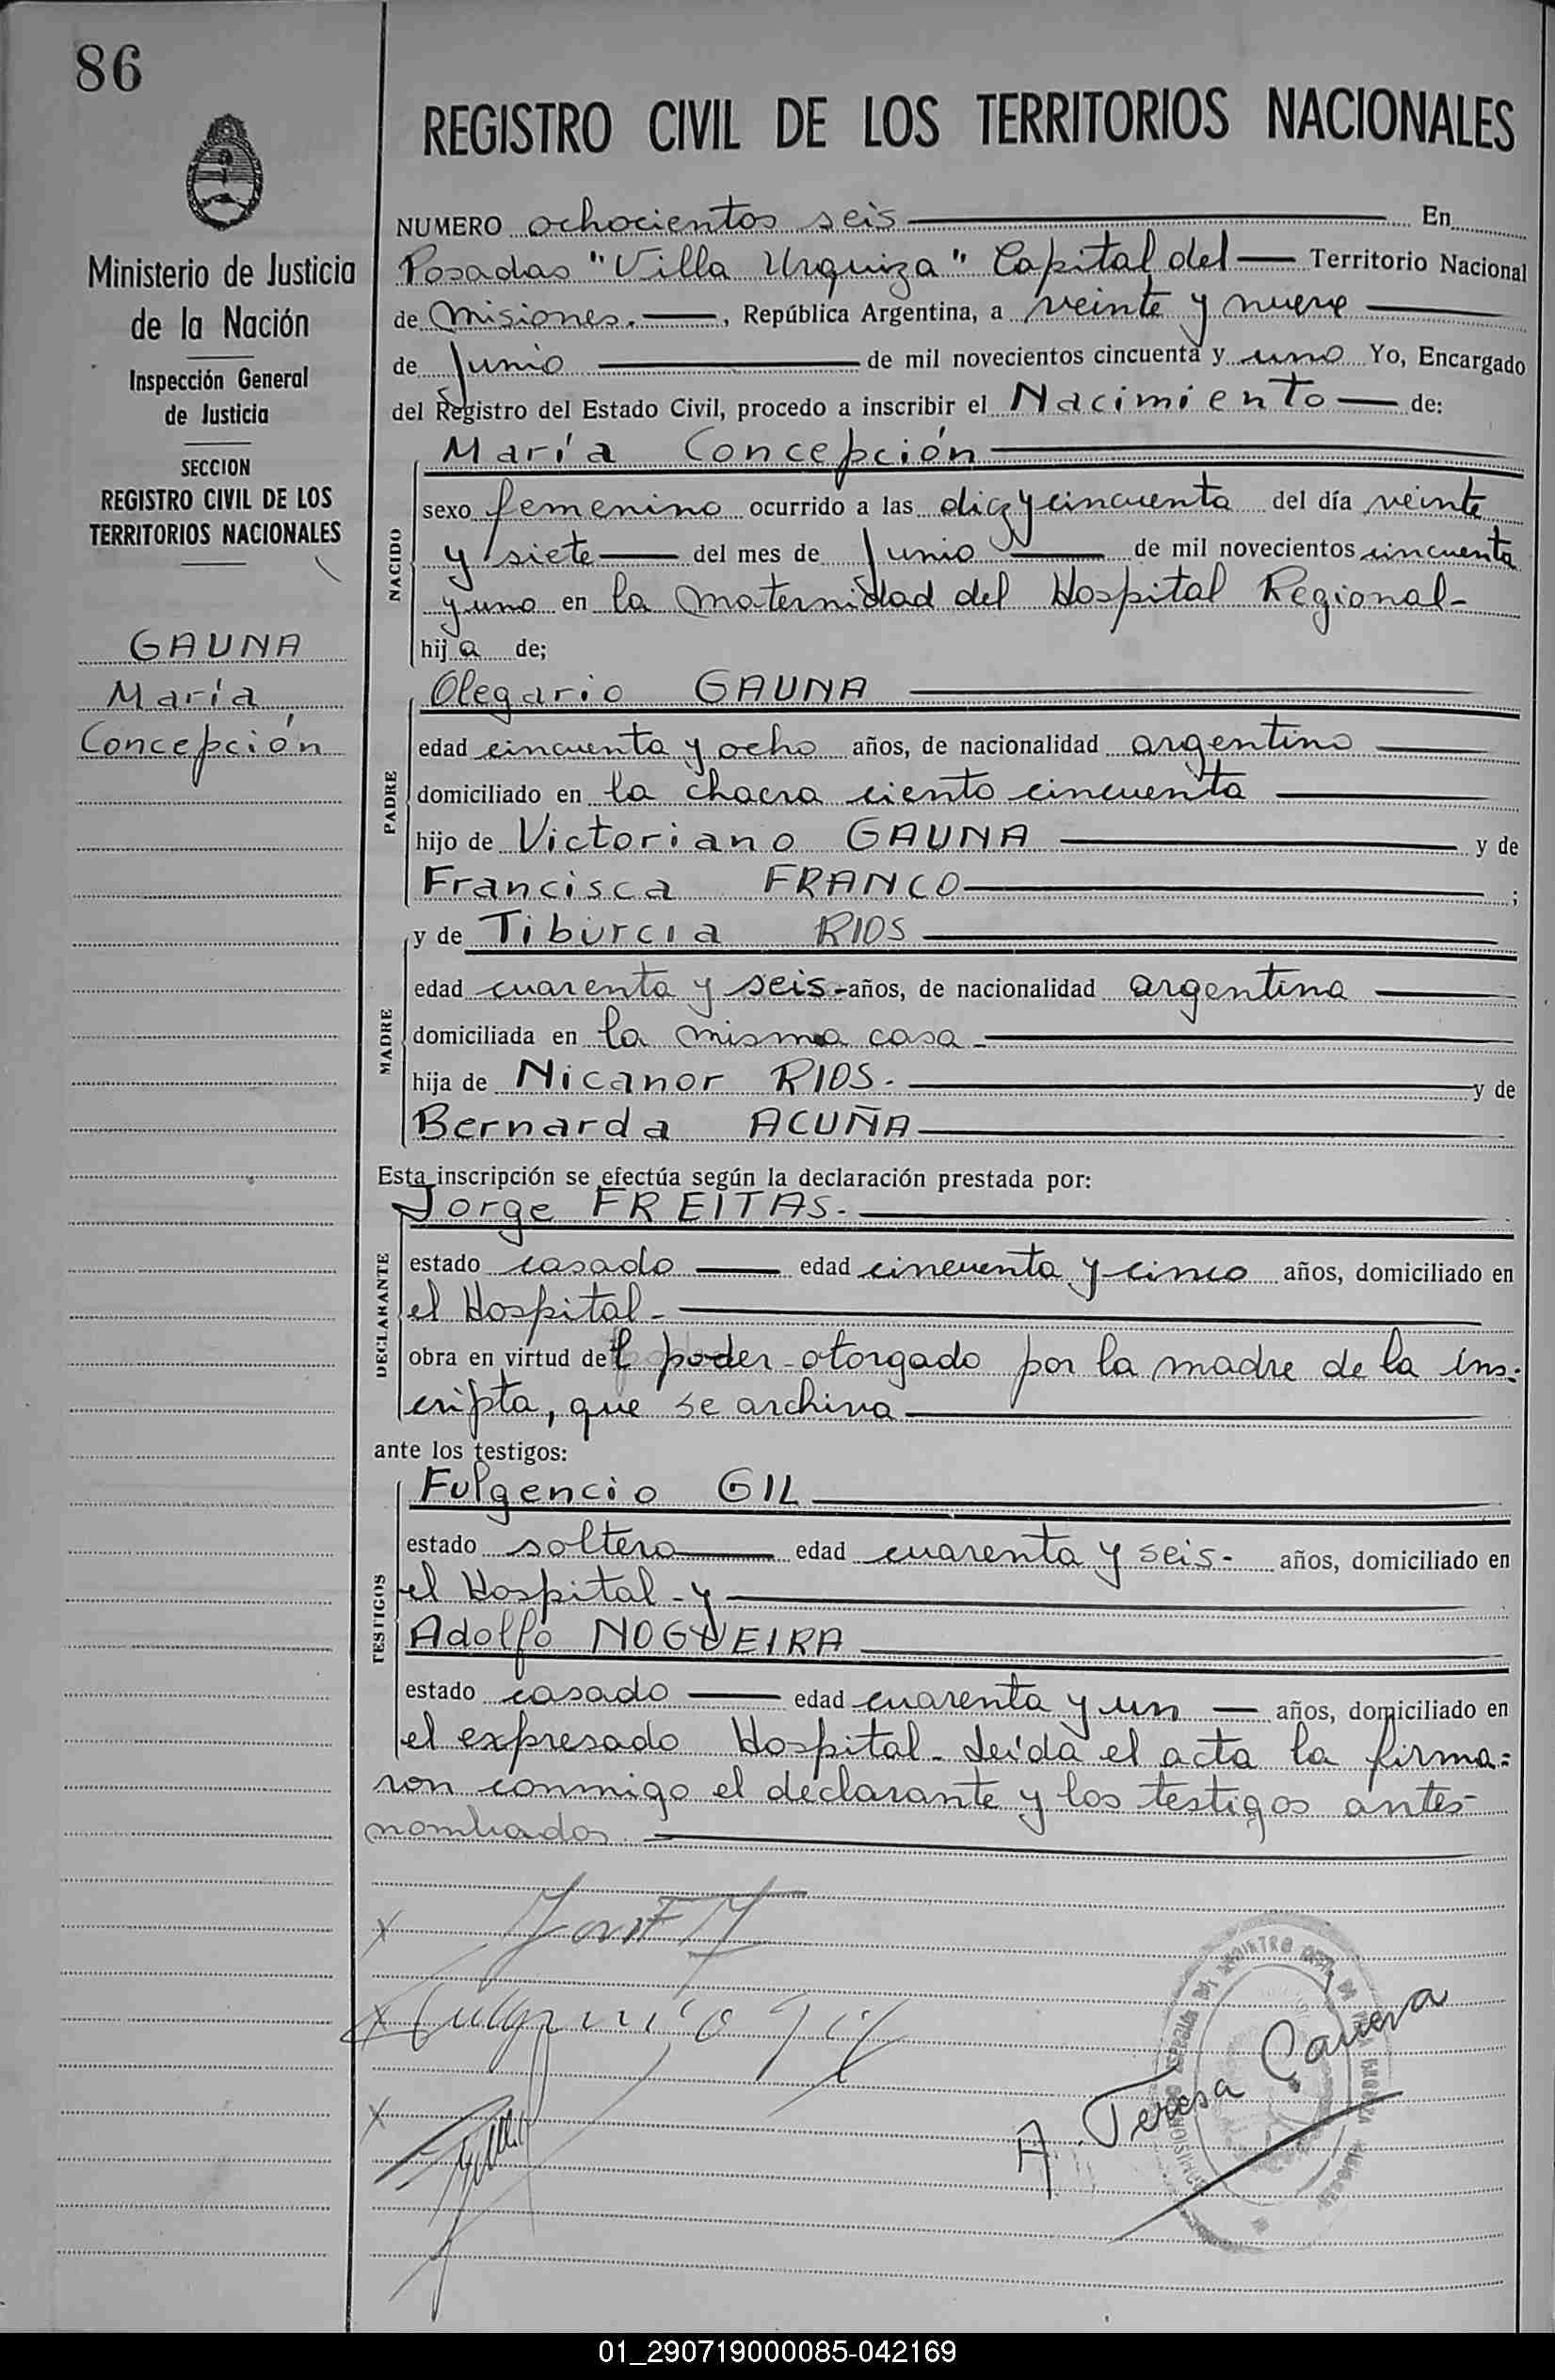 86
REGISTRO CIVIL DE LOS TERRITORIOS NACIONALES
Ministerio de Justicia
de la Nación
Inspección General
de Justicia
SECCION
REGISTRO CIVIL DE LOS
TERRITORIOS NACIONALES
GAUNA
María
Concepción
NUMERO ochocientos seis En
Posadas "Villa Urquiza" Capital del Territorio Nacional
de Misiones. , República Argentina, a veinte y nueve
de Junio de mil novecientos cincuenta y uno Yo, Encargado
del Registro del Estado Civil, procedo a inscribir el Nacimiento de:
María Concepción
NACIDO
sexo femenino ocurrido a las diez y cincuenta del día veinte
y siete del mes de Junio de mil novecientos cincuenta
y uno en la maternidad del Hospital Regional-
hija de;
Olegario GAUNA
PADRE
edad cincuenta y ocho años, de nacionalidad argentino
domiciliado en la chacra ciento cincuenta
hijo de Victoriano GAUNA y de
Francisca FRANCO ;
y de Tiburcia RIOS
MADRE
edad cuarenta y seis-años, de nacionalidad argentina
domiciliada en la misma casa-
hija de Nicanor RIOS. y de
Bernarda ACUÑA
Esta inscripción se efectúa según la declaración prestada por:
Jorge FREITAS.
DECLARANTE
estado casado edad cincuenta y cinco años, domiciliado en
el Hospital-
obra en virtud del poder otorgado por la madre de la ins:
cripta, que se archiva
ante los testigos:
Fulgencio GIL
TESTIGOS
estado soltero edad cuarenta y seis- años, domiciliado en
el Hospital-y
Adolfo NOGUEIRA
estado casado edad cuarenta y un años, domiciliado en
el expresado Hospital-Leída el acta la firma:
ron conmigo el declarante y los testigos antes
nombrados.
Fulgencio Gil
A. Teresa
01_290719000085-042169